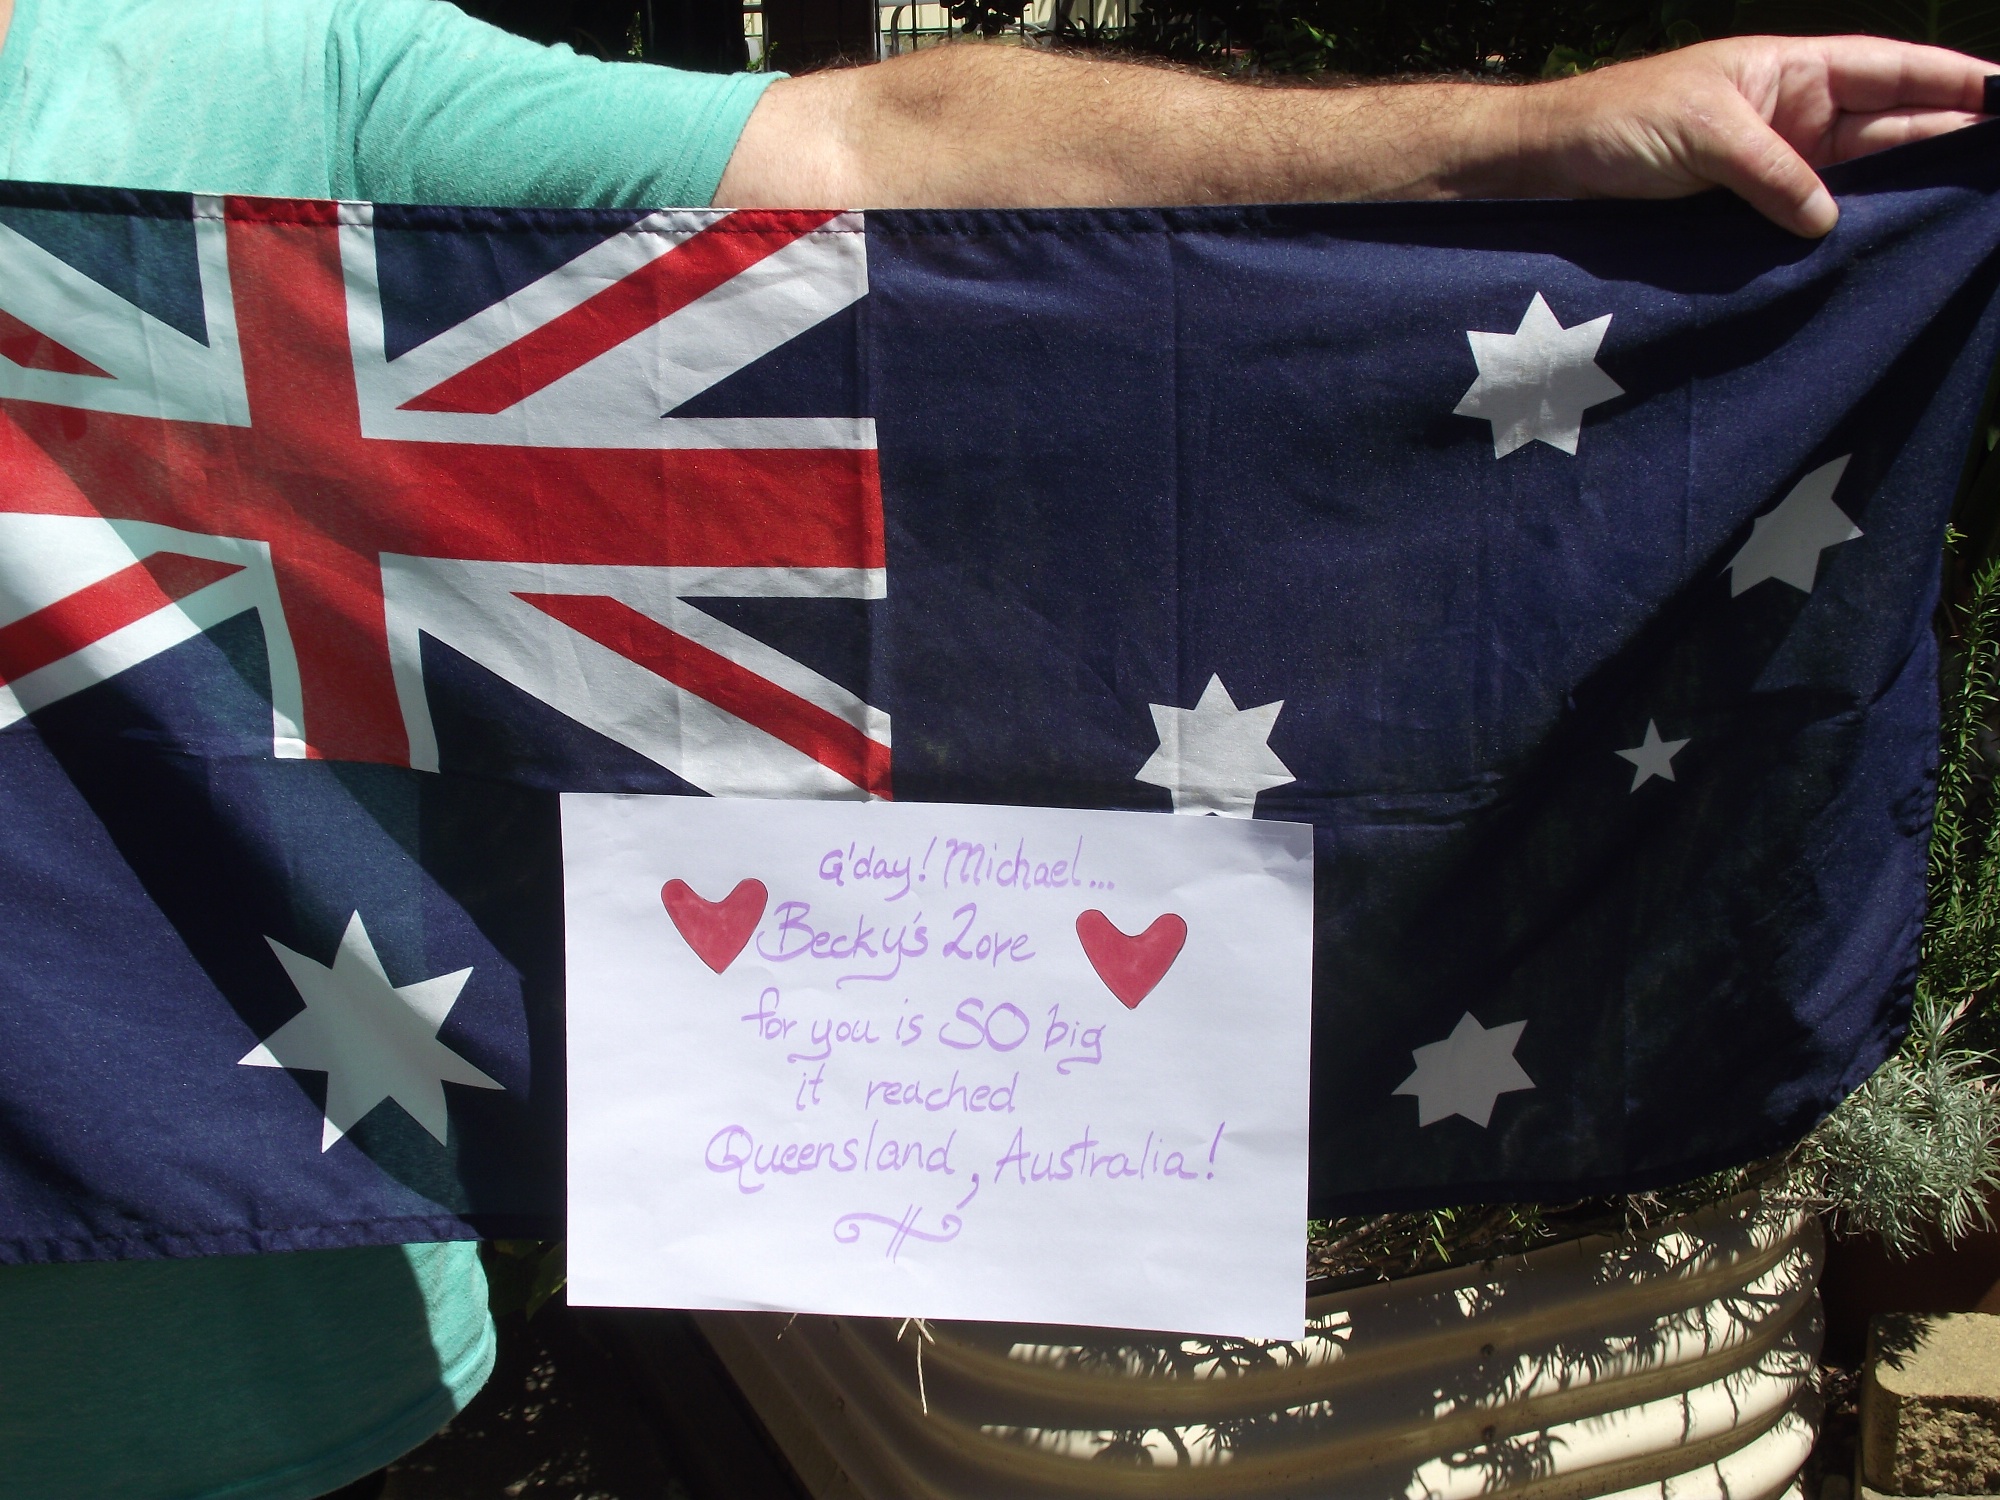 G'day! Michael...
Becky's Love
for you is SO big
it reached
Queensland, Australia!